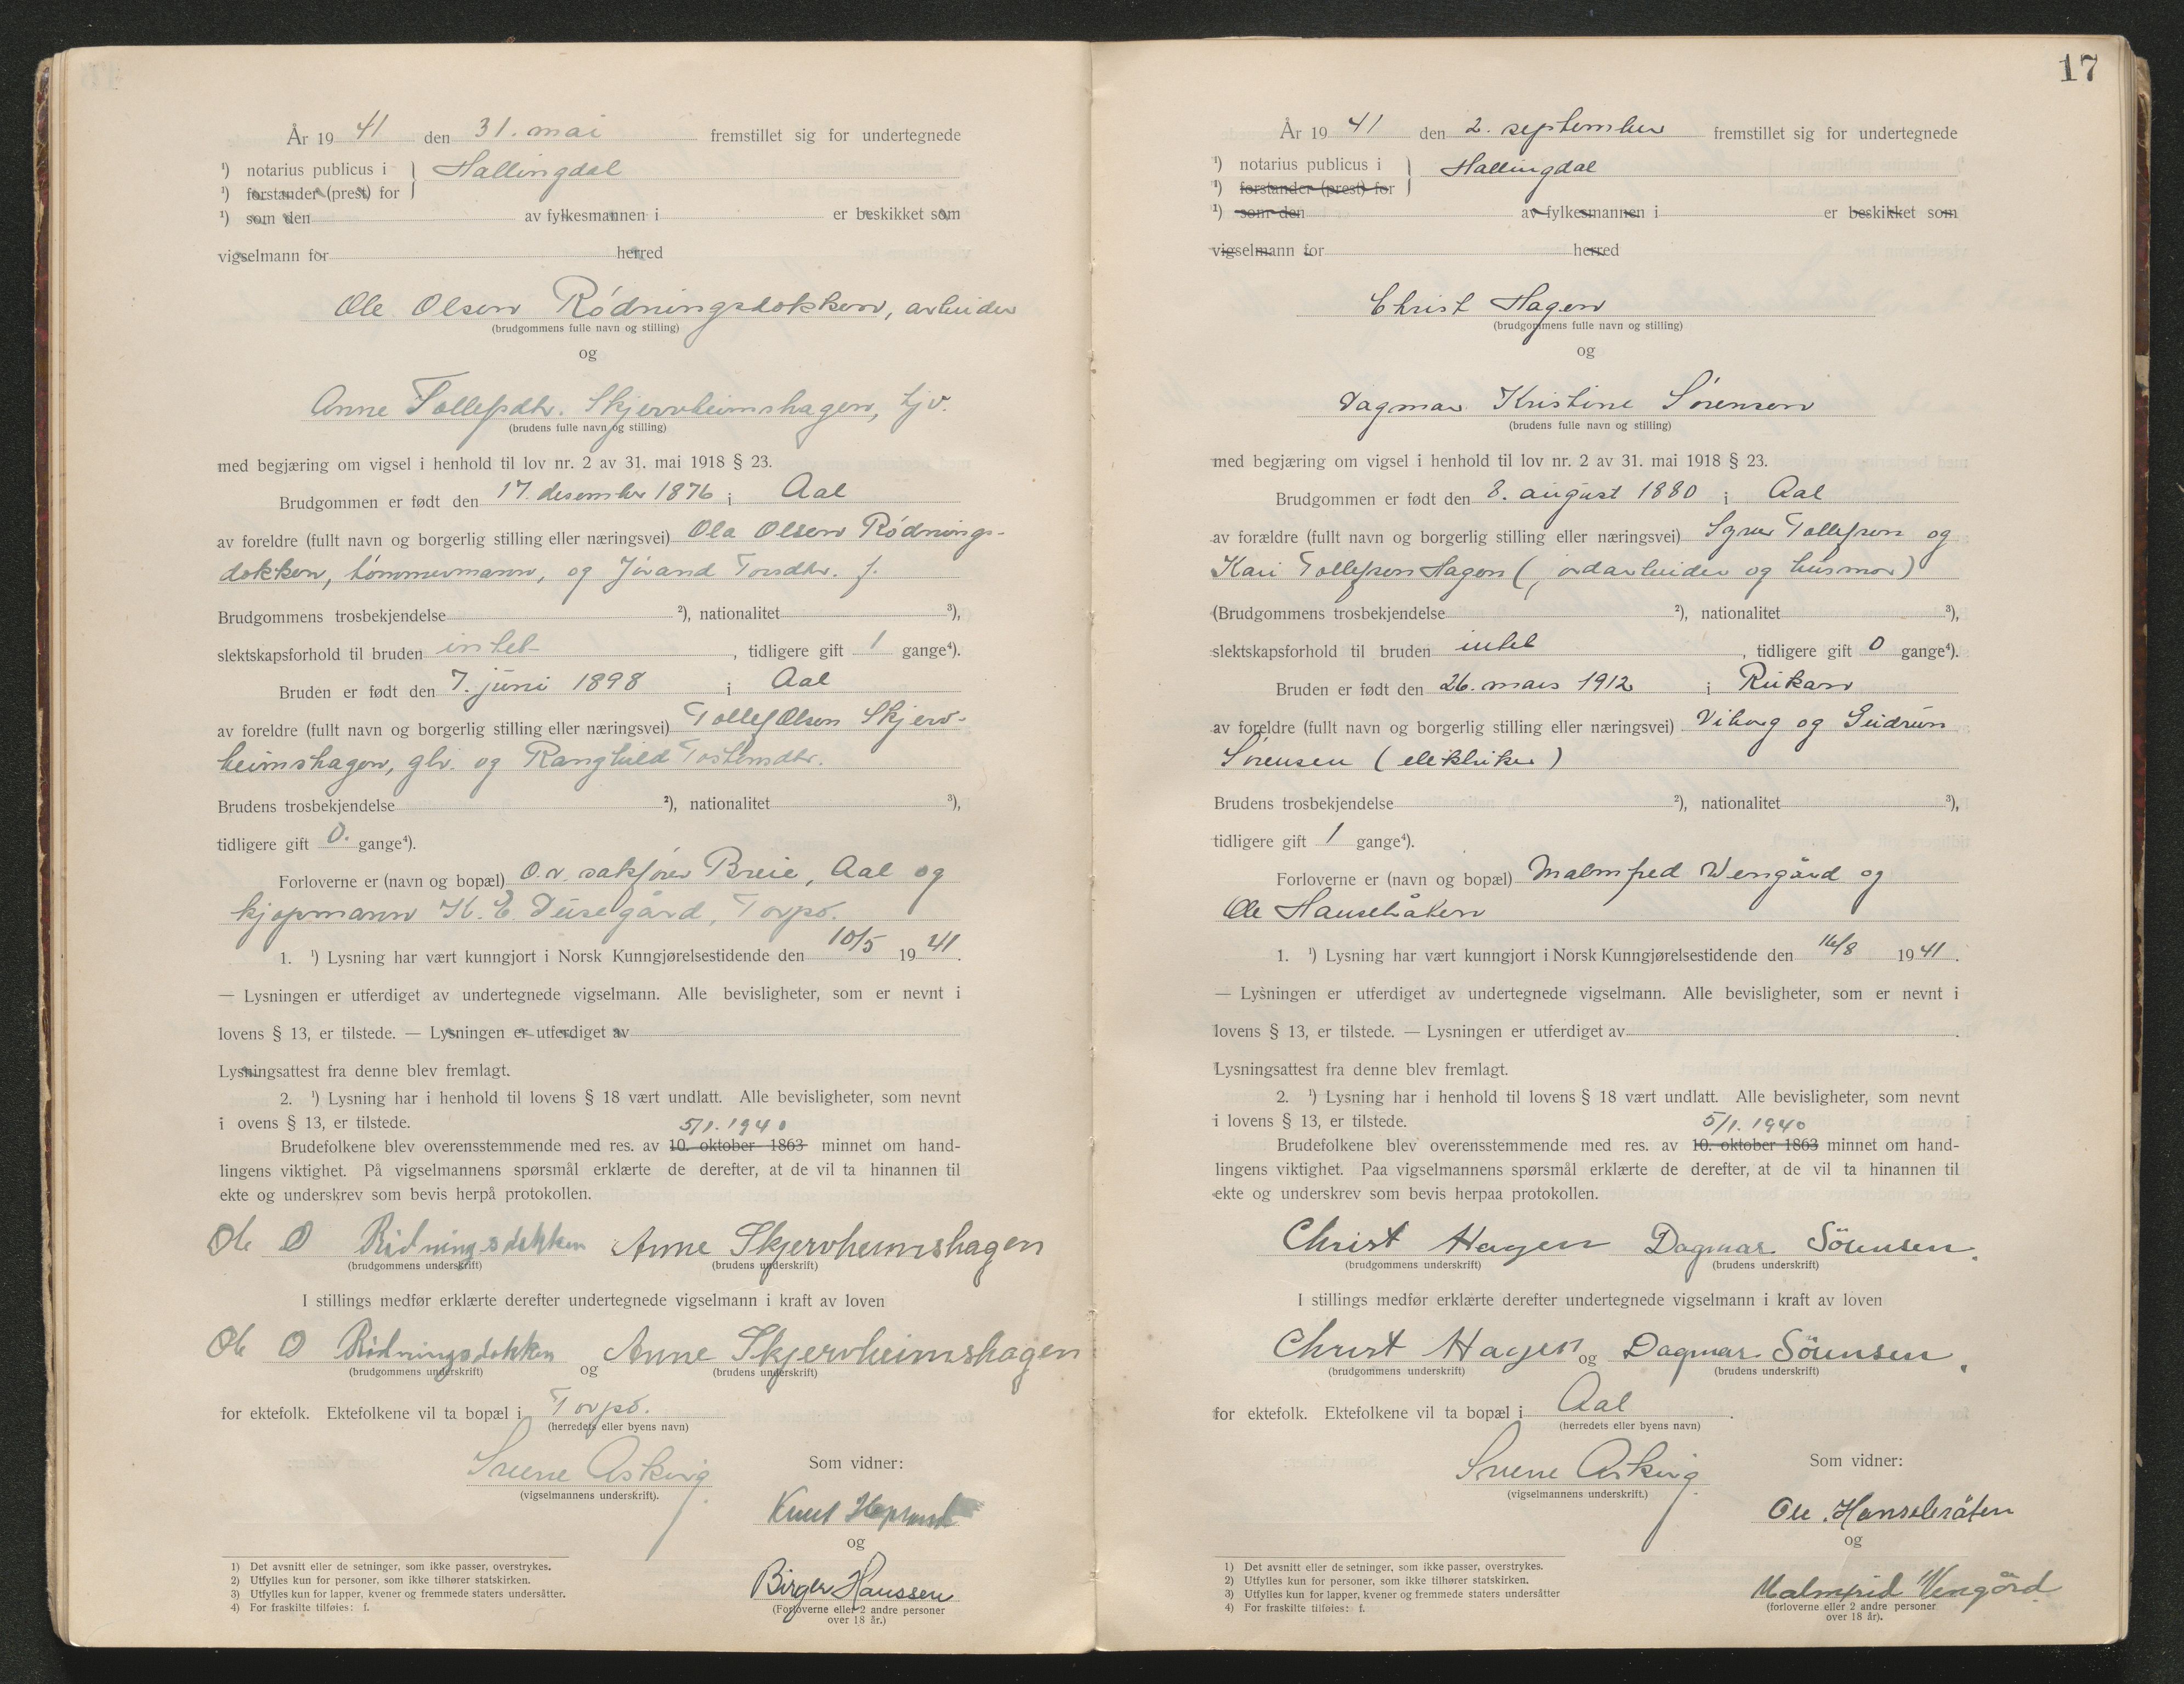 År 19 41 den 31. mai fremstillet sig for undertegnede
¹) notarius publicus i } Hallingdal
¹) forstander (prest) for
¹) som den av fylkesmannen i er beskikket som
vigselmann for herred
Ole Olsen Rødningsdokken, arbeider
(brudgommens fulle navn og stilling)
og
Anne Tollefsdtr. Skjervheimshagen, tjv.
(brudens fulle navn og stilling)
med begjæring om vigsel i henhold til lov nr. 2 av 31. mai 1918 § 23.
Brudgommen er født den 17. desember 1876 i Aal
av foreldre (fullt navn og borgerlig stilling eller næringsvei) Ola Olsen Rødnings-
dokken, tømmermann, og Jørand Torsdtr. f.
Brudgommens trosbekjendelse ²), nationalitet ³),
slektskapsforhold til bruden intet , tidligere gift 1 gange⁴).
Bruden er født den 7. juni 1898 i Aal
av foreldre (fullt navn og borgerlig stilling eller næringsvei) Tollef Olsen Skjerv-
heimshagen, gbr. og Ranghild Tostensdtr.
Brudens trosbekjendelse ²), nationalitet ³),
tidligere gift 0. gange⁴).
Forloverne er (navn og bopæl) O.r. sakfører Breie, Aal og
kjøpmann K. E. Dusegård, Torpo.
1. ¹) Lysning har vært kunngjort i Norsk Kunngjørelsestidende den 10/5 19 41.
— Lysningen er utferdiget av undertegnede vigselmann. Alle bevisligheter, som er nevnt i
lovens § 13, er tilstede. — Lysningen er utferdiget av
Lysningsattest fra denne blev fremlagt.
2. ¹) Lysning har i henhold til lovens § 18 vært undlatt. Alle bevisligheter, som nevnt
i ovens § 13, er tilstede. 5/1. 1940
Brudefolkene blev overensstemmende med res. av 10. oktober 1863 minnet om hand-
lingens viktighet. På vigselmannens spørsmål erklærte de derefter, at de vil ta hinannen til
ekte og underskrev som bevis herpå protokollen.
Ole O Rødningsdokken Anne Skjervheimshagen
(brudgommens underskrift) (brudens underskrift)
I stillings medfør erklærte derefter undertegnede vigselmann i kraft av loven
Ole O Rødningsdokken og Anne Skjervheimshagen
(brudgommens underskrift) (brudens underskrift)
for ektefolk. Ektefolkene vil ta bopæl i Torpo.
(herredets eller byens navn)
Som vidner:
Svenne Asking
(vigselmannens underskrift).
Knut
og
Birger Hanssen
(Forloverne eller 2 andre personer
over 18 år.)
1) Det avsnitt eller de setninger, som ikke passer, overstrykes.
2) Utfylles kun for personer, som ikke tilhører statskirken.
3) Utfylles kun for lapper, kvener og fremmede staters undersåtter.
4) For fraskilte tilføies: f.
17
År 19 41 den 2. september fremstillet sig for undertegnede
¹) notarius publicus i } Hallingdal
¹) forstander (prest) for
¹) som den av fylkesmannen i er beskikket som
vigselmann for herred
Christ Hagen
(brudgommens fulle navn og stilling)
og
Dagmar Kristine Sørensen
(brudens fulle navn og stilling)
med begjæring om vigsel i henhold til lov nr. 2 av 31. mai 1918 § 23.
Brudgommen er født den 8. august 1880 i Aal
av forældre (fullt navn og borgerlig stilling eller næringsvei) Syver Tollefsen og
Kari Tollefsen Hagen (jordarbeider og husmor)
(Brudgommens trosbekjendelse ²), nationalitet ³),
slektskapsforhold til bruden intet , tidligere gift 0 gange⁴).
Bruden er født den 26. mars 1912 i Rukan
av foreldre (fullt navn og borgerlig stilling eller næringsvei) Viborg og Gudrun
Sørensen (elektriker)
Brudens trosbekjendelse ²), nationalitet ³),
tidligere gift 1 gange⁴).
Forloverne er (navn og bopæl) Malmfred Wengård og
Ole Hansehåten
1. ¹) Lysning har vært kunngjort i Norsk Kunngjørelsestidende den 16/8 19 41.
— Lysningen er utferdiget av undertegnede vigselmann. Alle bevisligheter, som er nevnt i
lovens § 13, er tilstede. — Lysningen er utferdiget av
Lysningsattest fra denne blev fremlagt.
2. ¹) Lysning har i henhold til lovens § 18 vært undlatt. Alle bevisligheter, som nevnt
i lovens § 13, er tilstede. 5/1. 1940
Brudefolkene blev overensstemmende med res. av 10. oktober 1863 minnet om hand-
lingens viktighet. Paa vigselmannens spørsmål erklærte de derefter, at de vil ta hinannen til
ekte og underskrev som bevis herpaa protokollen.
Christ Hagen Dagmar Sörensen.
(brudgommens underskrift) (brudens underskrift)
I stillings medfør erklærte derefter undertegnede vigselmann i kraft av loven
Christ Hagen og Dagmar Sörensen.
(brudgommens underskrift) (brudens underskrift)
for ektefolk. Ektefolkene vil ta bopæl i Aal
(herredets eller byens navn)
Som vidner:
Svenne Asking
(vigselmannens underskrift.)
Ole
og
Malmfrid Wengård
(forloverne eller 2 andre personer
over 18 år).
1) Det avsnitt eller de setninger, som ikke passer, overstrykes.
2) Utfylles kun for personer, som ikke tilhører statskirken.
3) Utfylles kun for lapper, kvener og fremmede staters undersåtter
4) For fraskilte tilføies: f.